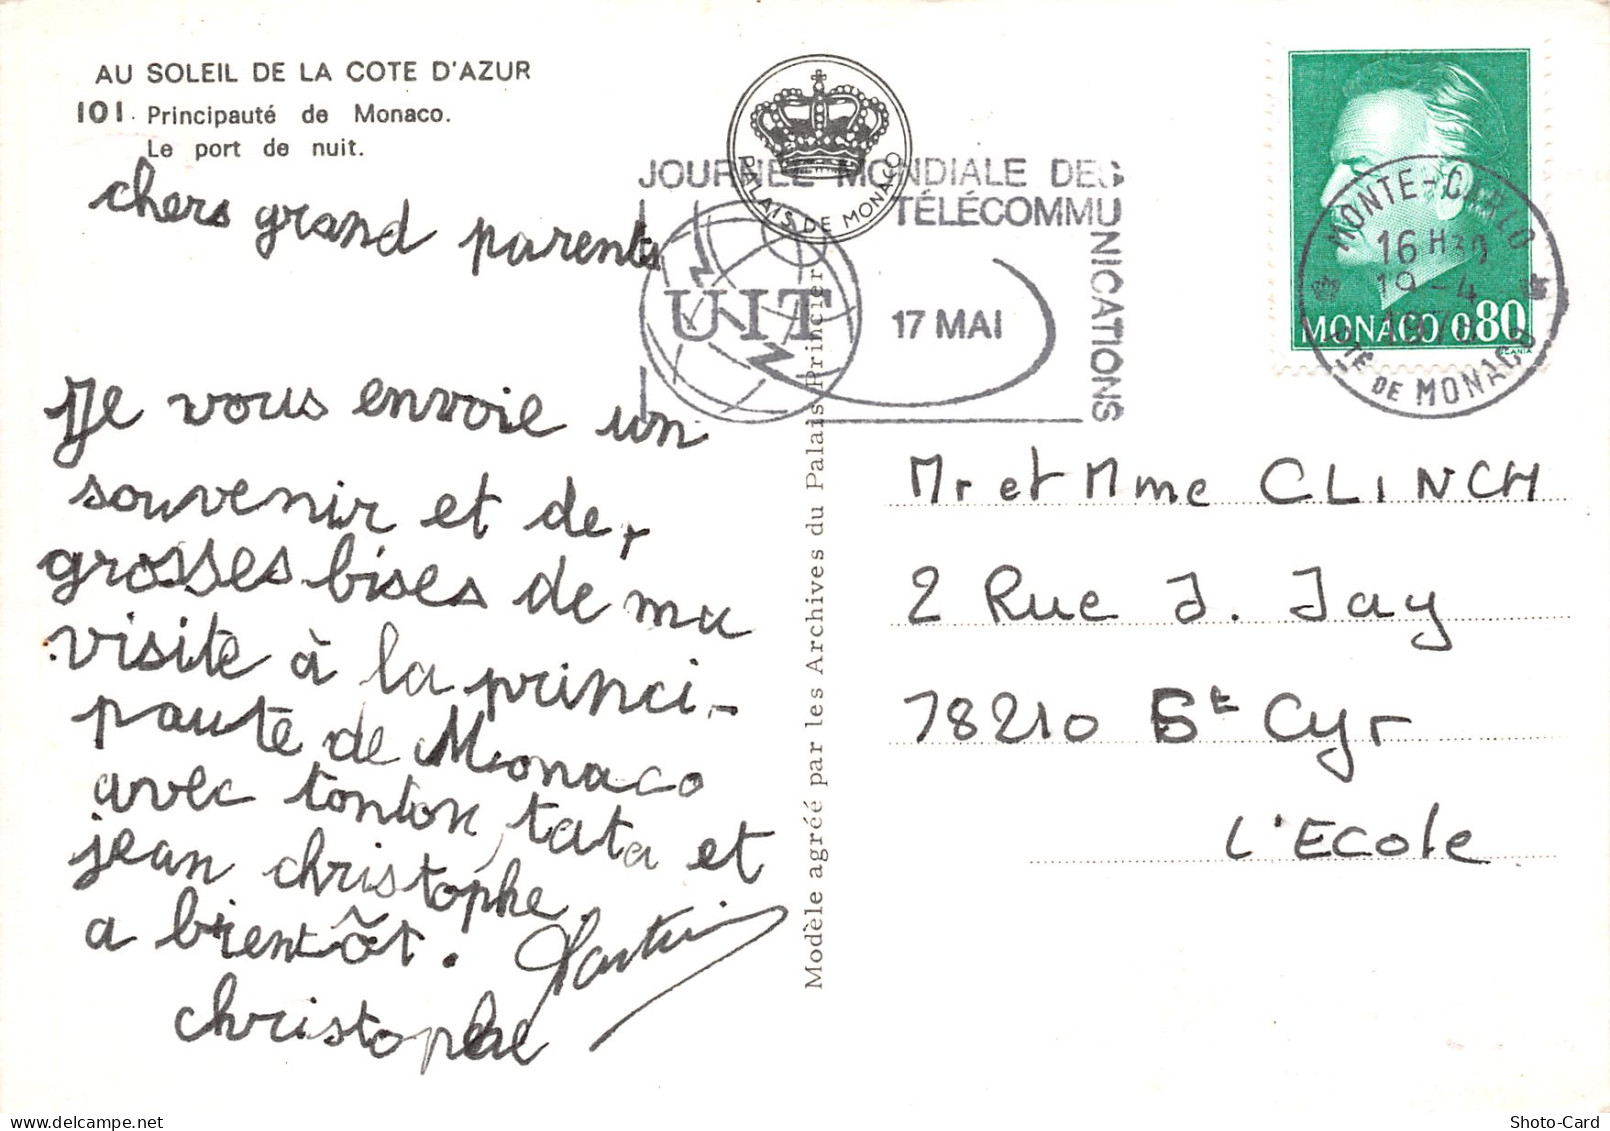 AU SOLEIL DE LA COTE D'AZUR
101. Principauté de Monaco.
Le port de nuit.
chers grand parents
Je vous envoie un
souvenir et de
grosses bises de ma
visite à la princi-
pauté de Monaco
avec tonton, tata et
jean christophe.
a bientôt.
christophe
PALAIS DE MONACO
JOURNEE MONDIALE DES
TÉLÉCOMMU
NICATIONS
UIT
17 MAI
Modèle agréé par les Archives du Palais Princier
MONACO 0.80
MONTE-CARLO
16 H 30
19-4
PTÉ DE MONACO
Mr et Mme CLINCH
2 Rue J. Jay
78210 St Cyr
L'ECole
Shoto-Card